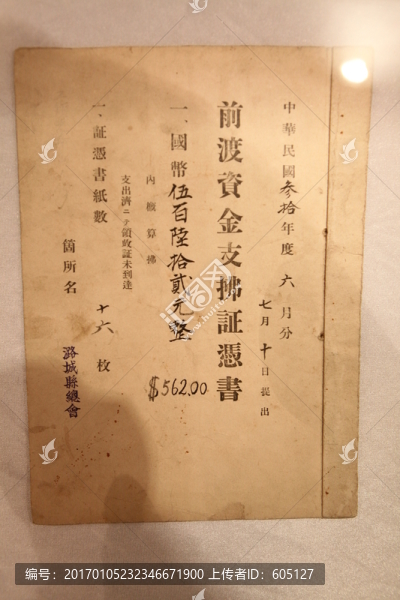 中華民國叁拾年度六月分
七月十日提出
前渡資金支拂証憑書
一、國幣伍百陸拾貳元整
$562.00
內概算拂
支出濟ニテ領收証未到達
一、証憑書紙數 十六枚
箇所名 潞城縣總會
编号：20170105232346671900 上传者ID：605127